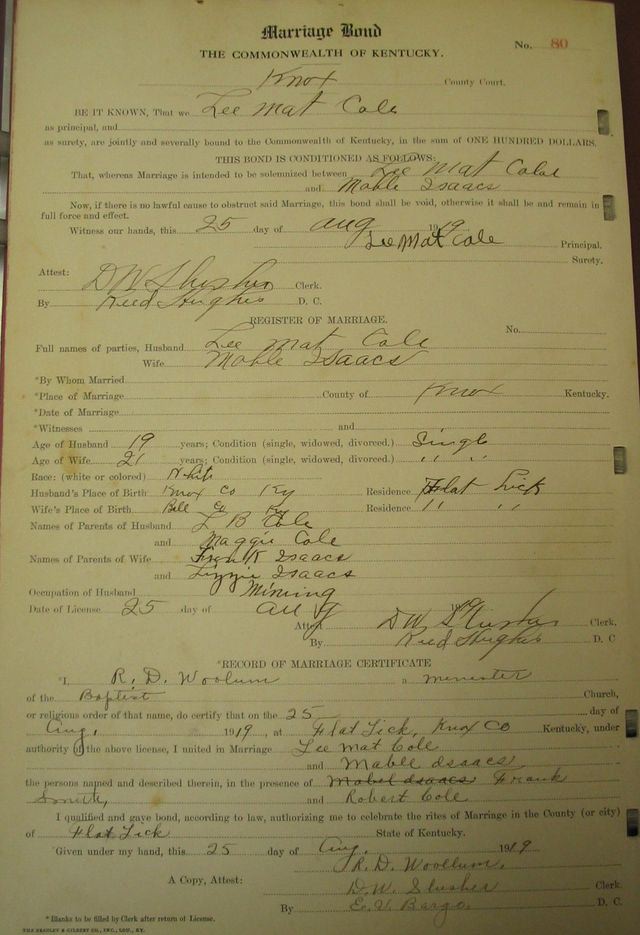 Marriage Bond
No. 80
THE COMMONWEALTH OF KENTUCKY.
Knox County Court.
BE IT KNOWN, That we Lee Mat Cole
as principal, and
as surety, are jointly and severally bound to the Commonwealth of Kentucky, in the sum of ONE HUNDRED DOLLARS.
THIS BOND IS CONDITIONED AS FOLLOWS:
That, whereas Marriage is intended to be solemnized between Lee Mat Cole
and Mable Isaacs
Now, if there is no lawful cause to obstruct said Marriage, this bond shall be void, otherwise it shall be and remain in
full force and effect.
Witness our hands, this 25 day of Aug 1919
Lee Mat Cole Principal.
Surety.
Attest: D W Slusher Clerk.
By Reed Hughes D. C.
REGISTER OF MARRIAGE.
No.
Full names of parties, Husband Lee Mat Cole
Wife Mable Isaacs
*By Whom Married
*Place of Marriage County of Knox Kentucky.
*Date of Marriage
*Witnesses and
Age of Husband 19 years; Condition (single, widowed, divorced.) Single
Age of Wife 21 years; Condition (single, widowed, divorced.) " "
Race: (white or colored) White
Husband's Place of Birth Knox Co Ky Residence Flat Lick
Wife's Place of Birth Bell Co Ky Residence " "
Names of Parents of Husband L B Cole
and Maggie Cole
Names of Parents of Wife Frank Isaacs
and Lizzie Isaacs
Occupation of Husband Mining
Date of License 25 day of Aug 1919
Attest D W Slusher Clerk.
By Reed Hughes D. C
*RECORD OF MARRIAGE CERTIFICATE
*I, R. D. Woolum a minester
of the Baptist Church,
or religious order of that name, do certify that on the 25 day of
Aug. 1919, at Flat Lick, Knox Co Kentucky, under
authority of the above license, I united in Marriage Lee Mat Cole
and Mable Isaacs
the persons named and described therein, in the presence of Mabel Isaacs Frank
Smith, and Robert Cole
I qualified and gave bond, according to law, authorizing me to celebrate the rites of Marriage in the County (or city)
of Flat Lick State of Kentucky.
Given under my hand, this 25 day of Aug. 1919
R. D. Woollum.
A Copy, Attest: D. W. Slusher Clerk.
By E. V. Bargo. D. C.
*Blanks to be filled by Clerk after return of License.
THE BRADLEY & GILBERT CO., INC., LOU., KY.